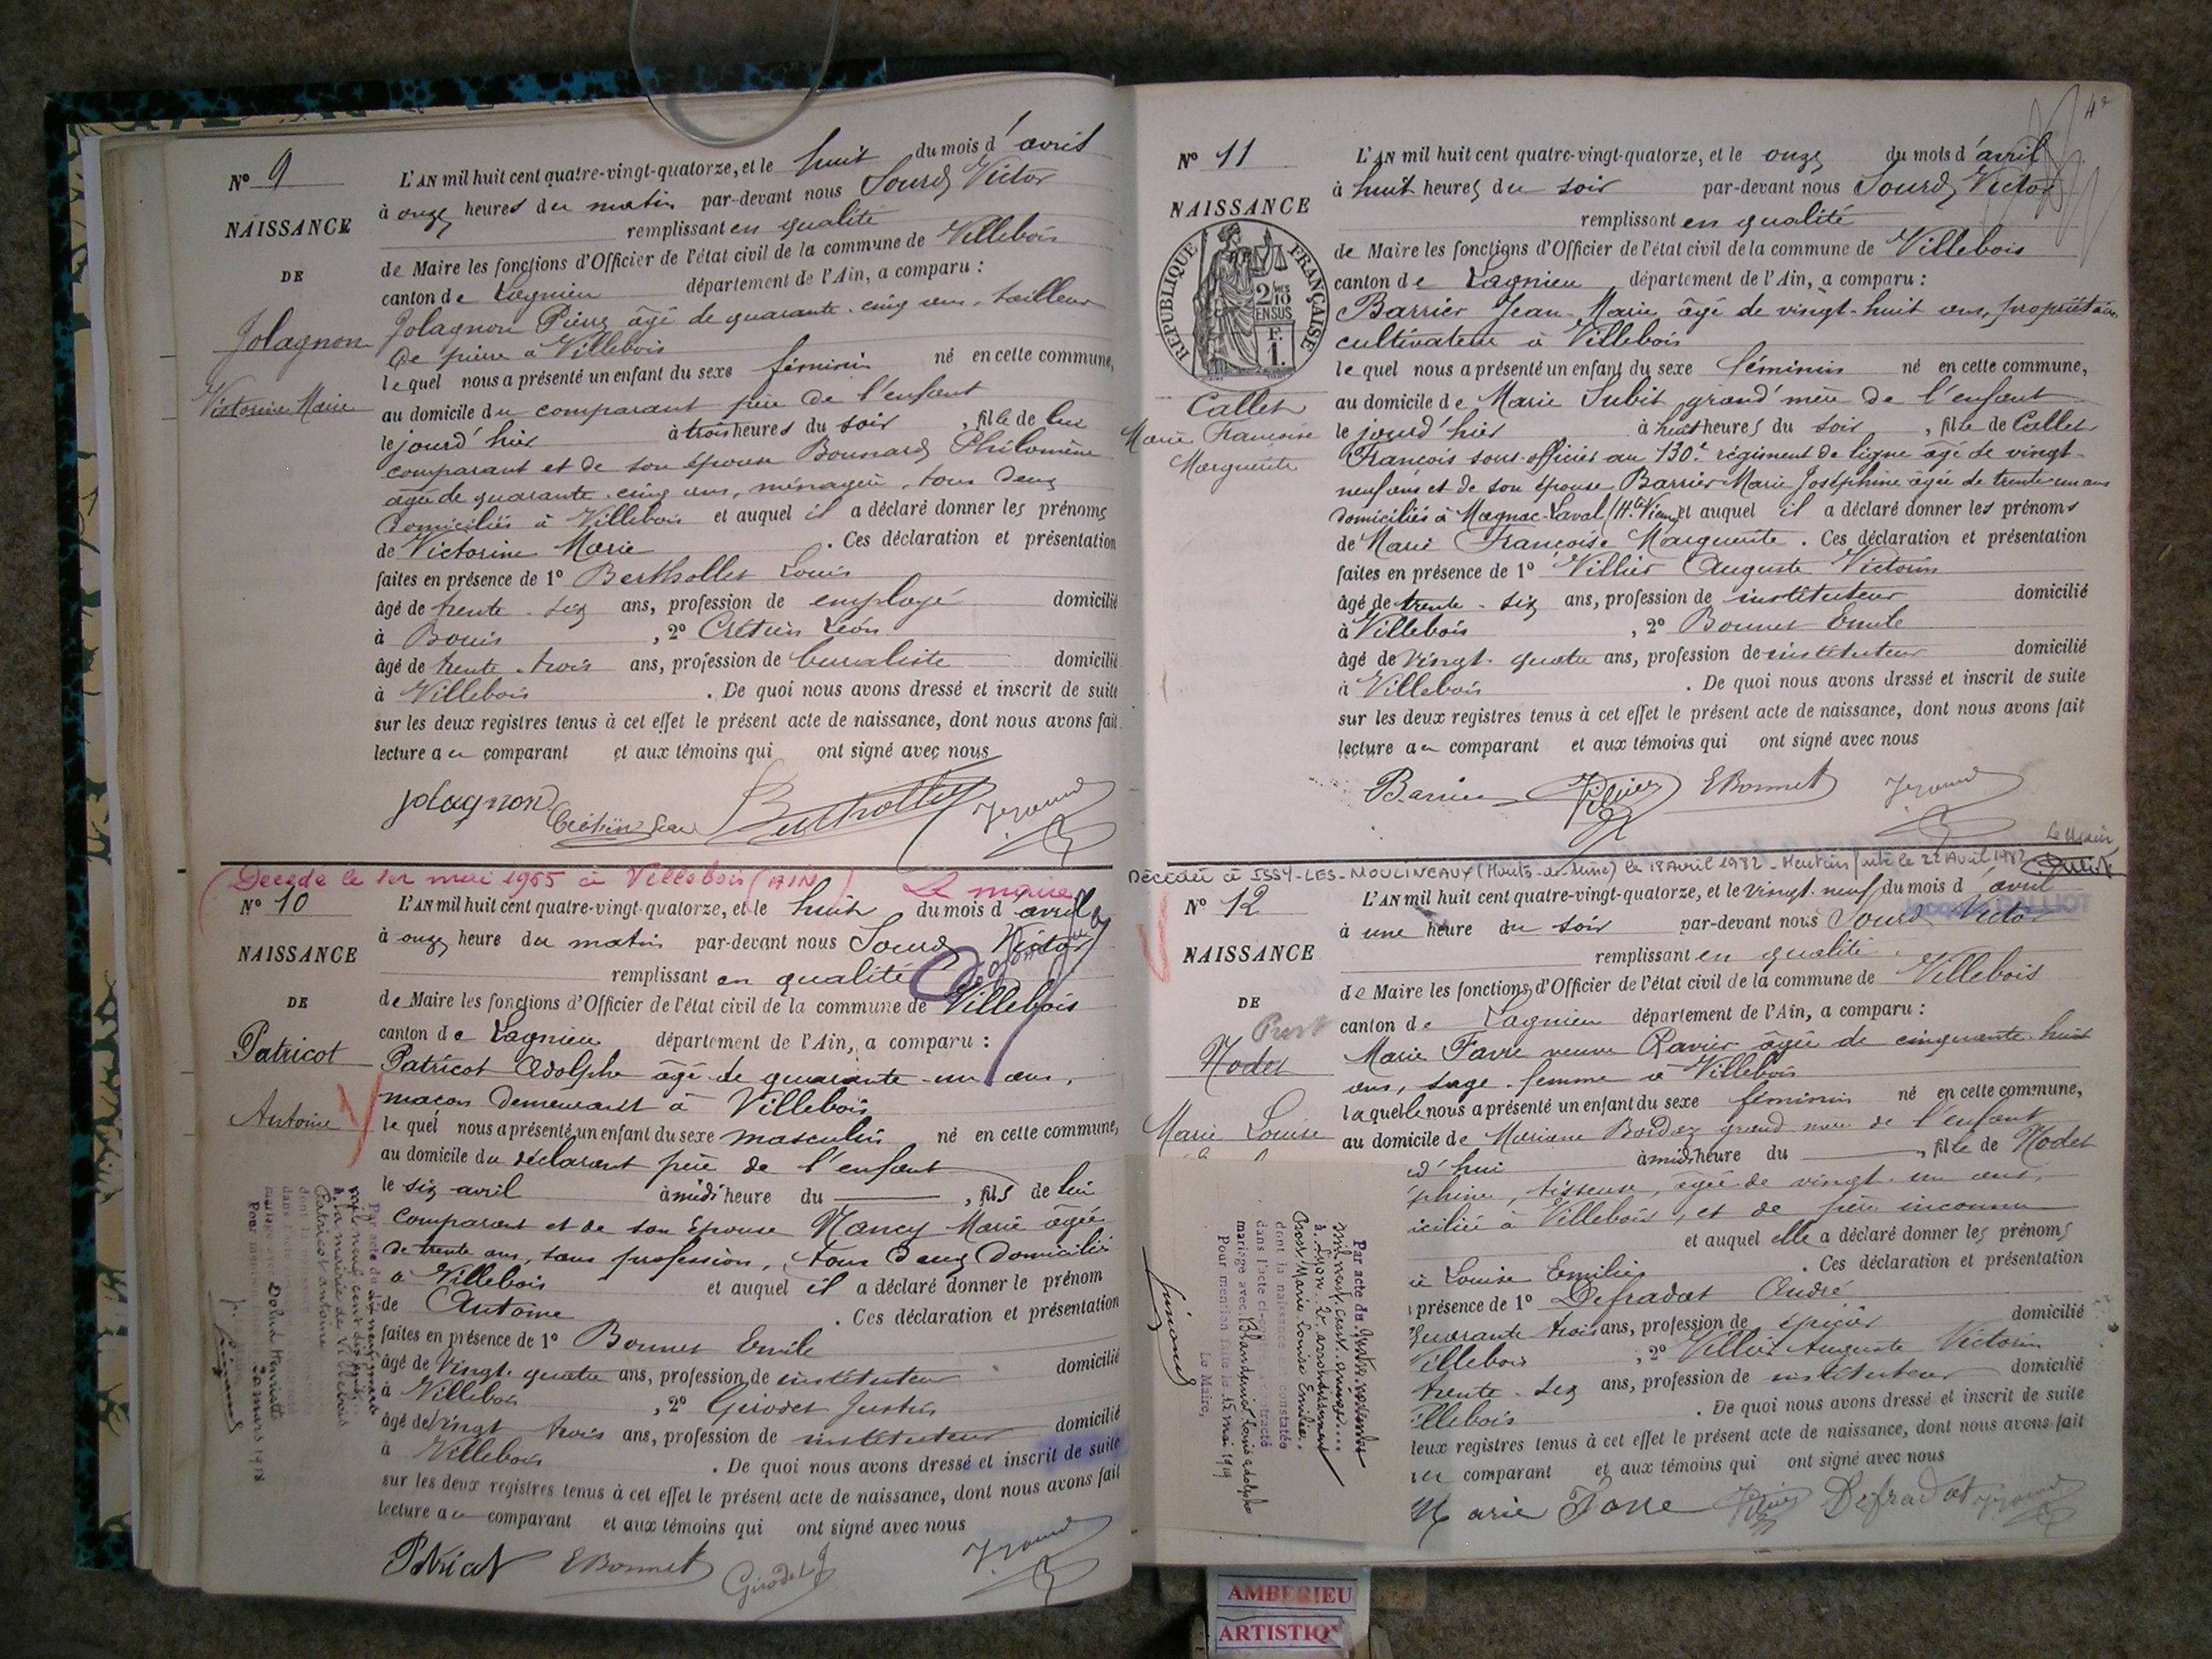 N° 9
NAISSANCE
DE
Jolagnon
Victorine Marie
L'AN mil huit cent quatre-vingt-quatorze, et le huit du mois d'avril
à onze heures du matin par-devant nous Sourd Victor
remplissant en qualité
de Maire les fonctions d'Officier de l'état civil de la commune de Villebois
canton de Lagnieu département de l'Ain, a comparu :
Jolagnon Pierre âgé de quarante-cinq ans, tailleur
de pierre à Villebois
lequel nous a présenté un enfant du sexe féminin né en cette commune,
au domicile du comparant père de l'enfant
le jourd'hier à trois heures du soir, fille de lui
comparant et de son épouse Bonnard Philomène
âgée de quarante-cinq ans, ménagère, tous deux
domiciliés à Villebois et auquel il a déclaré donner les prénoms
de Victorine Marie. Ces déclaration et présentation
faites en présence de 1° Berthollet Louis
âgé de trente-six ans, profession de employé domicilié
à Bouis, 2° Crétin Léon
âgé de trente-trois ans, profession de buraliste domicilié
à Villebois. De quoi nous avons dressé et inscrit de suite
sur les deux registres tenus à cet effet le présent acte de naissance, dont nous avons fait
lecture au comparant et aux témoins qui ont signé avec nous
Jolagnon Crétin Léon Berthollet
Décédé le 1er mai 1955 à Villebois (AIN) Le maire
N° 10
NAISSANCE
DE
Patricot
Antoine
L'AN mil huit cent quatre-vingt-quatorze, et le huit du mois d'avril
à onze heure du matin par-devant nous Sourd Victor
remplissant en qualité
de Maire les fonctions d'Officier de l'état civil de la commune de Villebois
canton de Lagnieu département de l'Ain, a comparu :
Patricot Adolphe âgé de quarante-un ans,
maçon demeurant à Villebois
lequel nous a présenté un enfant du sexe masculin né en cette commune,
au domicile du déclarant père de l'enfant
le six avril à midi heure du, fils de lui
comparant et de son épouse Nancy Marie âgée
de trente ans, sans profession, tous deux domiciliés
à Villebois et auquel il a déclaré donner le prénom
de Antoine. Ces déclaration et présentation
faites en présence de 1° Bonnet Emile
âgé de vingt-quatre ans, profession de instituteur domicilié
à Villebois, 2° Girodet Justin
âgé de vingt trois ans, profession de instituteur domicilié
à Villebois. De quoi nous avons dressé et inscrit de suite
sur les deux registres tenus à cet effet le présent acte de naissance, dont nous avons fait
lecture au comparant et aux témoins qui ont signé avec nous
Patricot EBonnet Girodet J
à la mairie de Villebois
Patricot Antoine
mariage avec Dolin Henriette
30 mars 1918
4e
N° 11
NAISSANCE
RÉPUBLIQUE FRANÇAISE
2/10
EN SUS
F.
1.
Callet
Marie Françoise
Marguerite
L'AN mil huit cent quatre-vingt-quatorze, et le onze du mois d'avril
à huit heures du soir par-devant nous Sourd Victor
remplissant en qualité
de Maire les fonctions d'Officier de l'état civil de la commune de Villebois
canton de Lagnieu département de l'Ain, a comparu :
Barrier Jean-Marie âgé de vingt-huit ans, propriétaire
cultivateur à Villebois
lequel nous a présenté un enfant du sexe féminin né en cette commune,
au domicile de Marie Subit grand'mère de l'enfant
le jourd'hier à huit heures du soir, fille de Callet
François sous-officier au 130e régiment de ligne âgé de vingt-
neuf ans et de son épouse Barrier Marie Joséphine âgée de trente un ans
domiciliés à Magnac-Laval (Hte Vienne) et auquel il a déclaré donner les prénoms
de Marie Françoise Marguerite. Ces déclaration et présentation
faites en présence de 1° Villier Auguste Victorin
âgé de trente-six ans, profession de instituteur domicilié
à Villebois, 2° Bonnet Emile
âgé de vingt-quatre ans, profession de instituteur domicilié
à Villebois. De quoi nous avons dressé et inscrit de suite
sur les deux registres tenus à cet effet le présent acte de naissance, dont nous avons fait
lecture au comparant et aux témoins qui ont signé avec nous
Barrier Villier EBonnet
Le Maire
Décédée à ISSY-LES-MOULINEAUX (Hauts-de-Seine) le 18 Avril 1982 - Mention faite le 22 Avril 1982
N° 12
NAISSANCE
DE
Nodet
Marie Louise
L'AN mil huit cent quatre-vingt-quatorze, et le vingt-neuf du mois d'avril
à une heure du soir par-devant nous Sourd Victor
remplissant en qualité
de Maire les fonctions d'Officier de l'état civil de la commune de Villebois
canton de Lagnieu département de l'Ain, a comparu :
Marie Favre veuve Ravier âgée de cinquante-huit
ans, sage-femme à Villebois
laquelle nous a présenté un enfant du sexe féminin né en cette commune,
au domicile de Mariane Bordaz grand mère de l'enfant
d'hui à midi heure du, fille de Nodet
phine, tisseuse, âgée de vingt-un ans,
iciliée à Villebois, et de père inconnu
et auquel elle a déclaré donner les prénoms
ie Louise Emilie. Ces déclaration et présentation
présence de 1° Defradat André
quarante trois ans, profession de épicier domicilié
Villebois, 2° Villier Auguste Victorin
trente-six ans, profession de instituteur domicilié
illebois. De quoi nous avons dressé et inscrit de suite
deux registres tenus à cet effet le présent acte de naissance, dont nous avons fait
au comparant et aux témoins qui ont signé avec nous
Marie Favre Villier Defradat
Par acte du quatre novembre
mil neuf cent
à Lyon 2e arrondissement
Marie Louise Emilie
dont la naissance est constatée
dans l'acte ci-contre a contracté
mariage avec Blandenier Louis Adolphe
Pour mention faite le 15 mai 1919
Le Maire,
AMBERIEU
ARTISTIQ